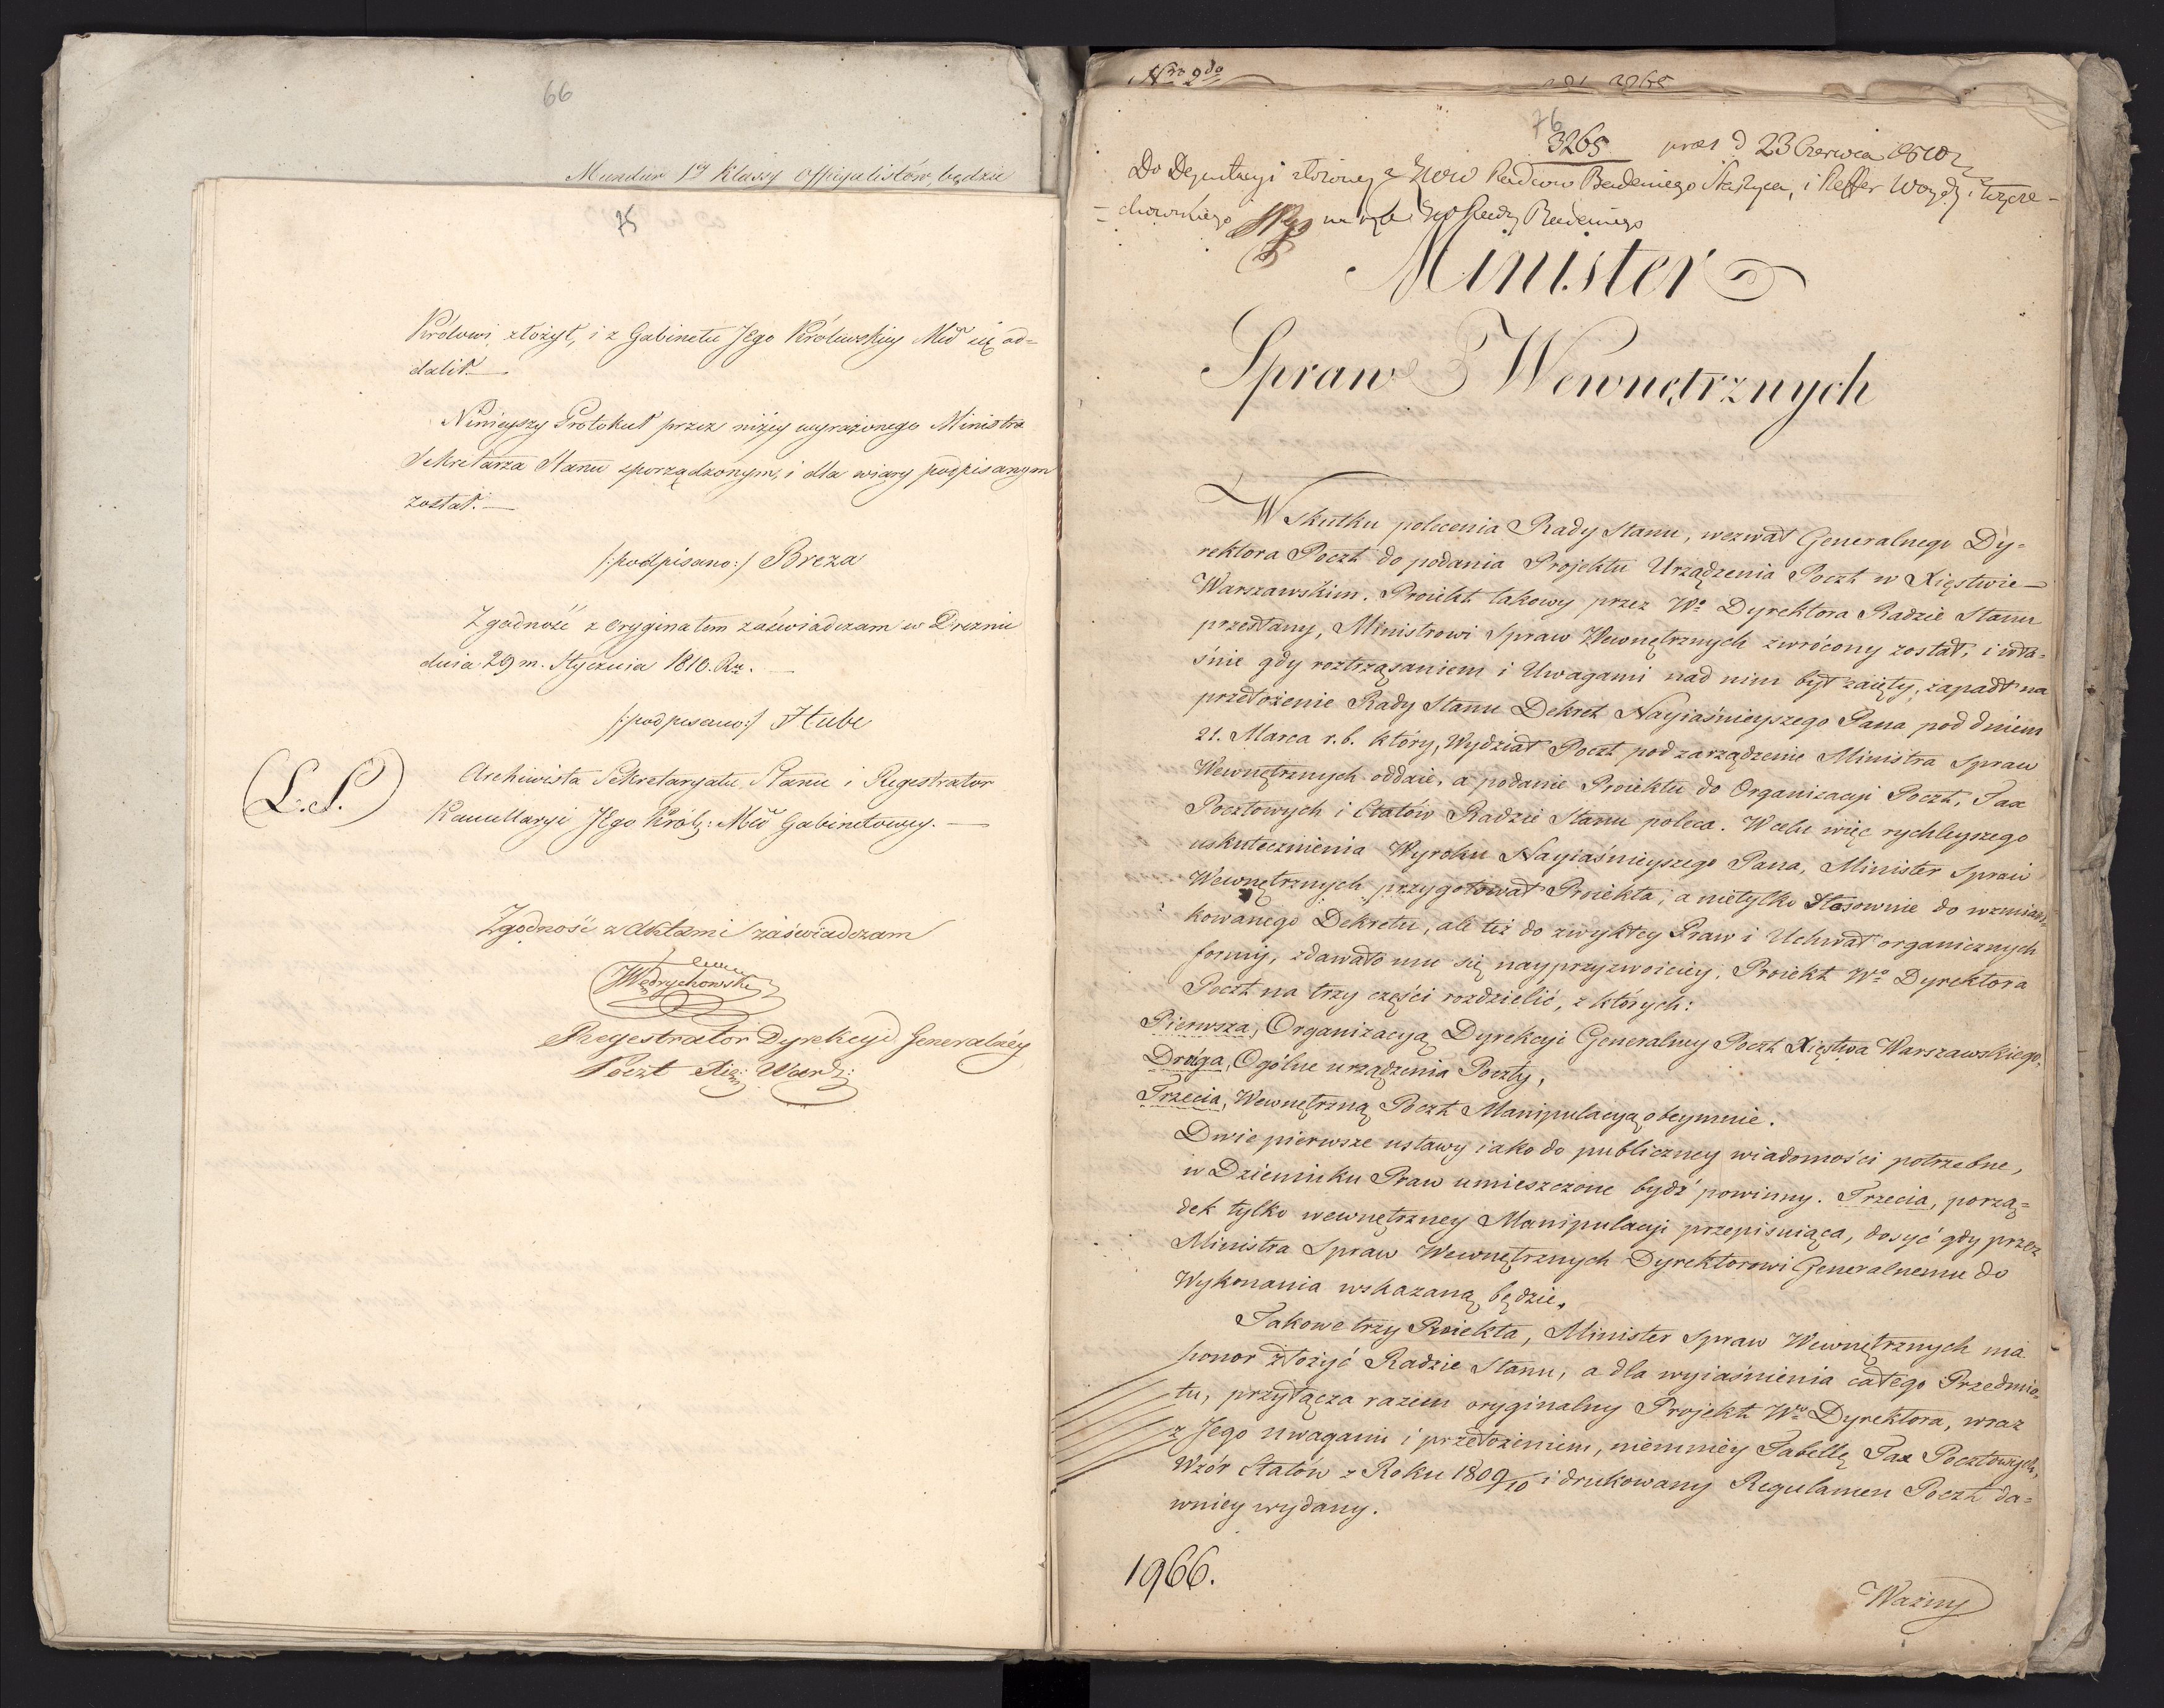 66
Mundur 1ey Klassy Officyalistów, będzie
75
Królowi złożył, i z Gabinetu Jego Królewskiey Mci się od=
dalił.—
Ninieyszy Protokuł przez niżey wyrażonego Ministra
Sekretarza Stanu sporządzonym, i dla wiary podpisanym
został.—
/:podpisano:/ Breza
Zgodność z oryginałem zaświadczam w Dreznie
dnia 29 m. Stycznia 1810. Ru.—
/:podpisano:/ Hube
(L.S.)
Archiwista Sekretaryatu Stanu i Regestrator
Kancellaryi Jego Król: Mci Gabinetowey.—
Zgodność z Aktami zaświadczam
Wędrychowski
Regestrator Dyrekcyi Generalney
Poczt Xię: Warsz:
Nro 2do
76
3265 praes d 23 Czerwca 1810
Do Deputacyi złożoney z Radców Badeniego Staszyca, i Reffer Woydy i Węgrze=
=chowskiego na ręce Badeniego
Minister
Spraw Wewnętrznych
W skutku polecenia Rady Stanu, wezwał Generalnego Dy=
rektora Poczt do podania Projektu Urządzenia Poczt w Xięstwie—
Warszawskim. Proiekt takowy przez Wo Dyrektora Radzie Stanu
przesłany, Ministrowi Spraw Wewnętrznych zwrócony został, i wła=
śnie gdy roztrząsaniem i Uwagami nad nim był zaięty, zapadł na
przełożenie Rady Stanu Dekret Nayiaśnieyszego Pana pod dniem
21. Marca r.b. który, Wydział Poczt pod zarządzenie Ministra Spraw
Wewnętrznych oddaie, a podanie Proiektu do Organizacyi Poczt, Tax
Pocztowych i Etatów Radzie Stanu poleca. W celu więc rychleyszego
uskutecznienia Wyroku Nayiaśnieyszego Pana, Minister Spraw
Wewnętrznych przygotował Proiekta, a nietylko Stosownie do wzmian=
kowanego Dekretu, ale też do zwykłey Praw i Uchwał organicznych
formy, zdawało mu się nayprzyzwoiciey, Proiekt Wo Dyrektora
Poczt na trzy części rozdzielić, z których:
Pierwsza, Organizacyą Dyrekcyi Generalney Poczt Xięstwa Warszawskiego,
Druga, Ogólne urządzenia Poczty,
Trzecia, Wewnętrzną Poczt Manipulacyą obeymuie.
Dwie pierwsze ustawy iako do publiczney wiadomości potrzebne,
w Dzienniku Praw umieszczone bydź powinny. Trzecia, porzą=
dek tylko wewnętrzney Manipulacyi przepisuiąca, dosyć gdy przez
Ministra Spraw Wewnętrznych Dyrektorowi Generalnemu do
Wykonania wskazaną będzie.
Takowe trzy Proiekta, Minister Spraw Wewnętrznych ma
honor złożyć Radzie Stanu, a dla wyiaśnienia całego Przedmio=
tu, przyłącza razem oryginalny Projekt Wo Dyrektora, wraz
z Jego uwagami i przełożeniem, niemniey Tabellę Tax Pocztowych,
Wzór Etatów z Roku 1809/10 i drukowany Regulamen Poczt da=
wniey wydany.
1966.
Ważny